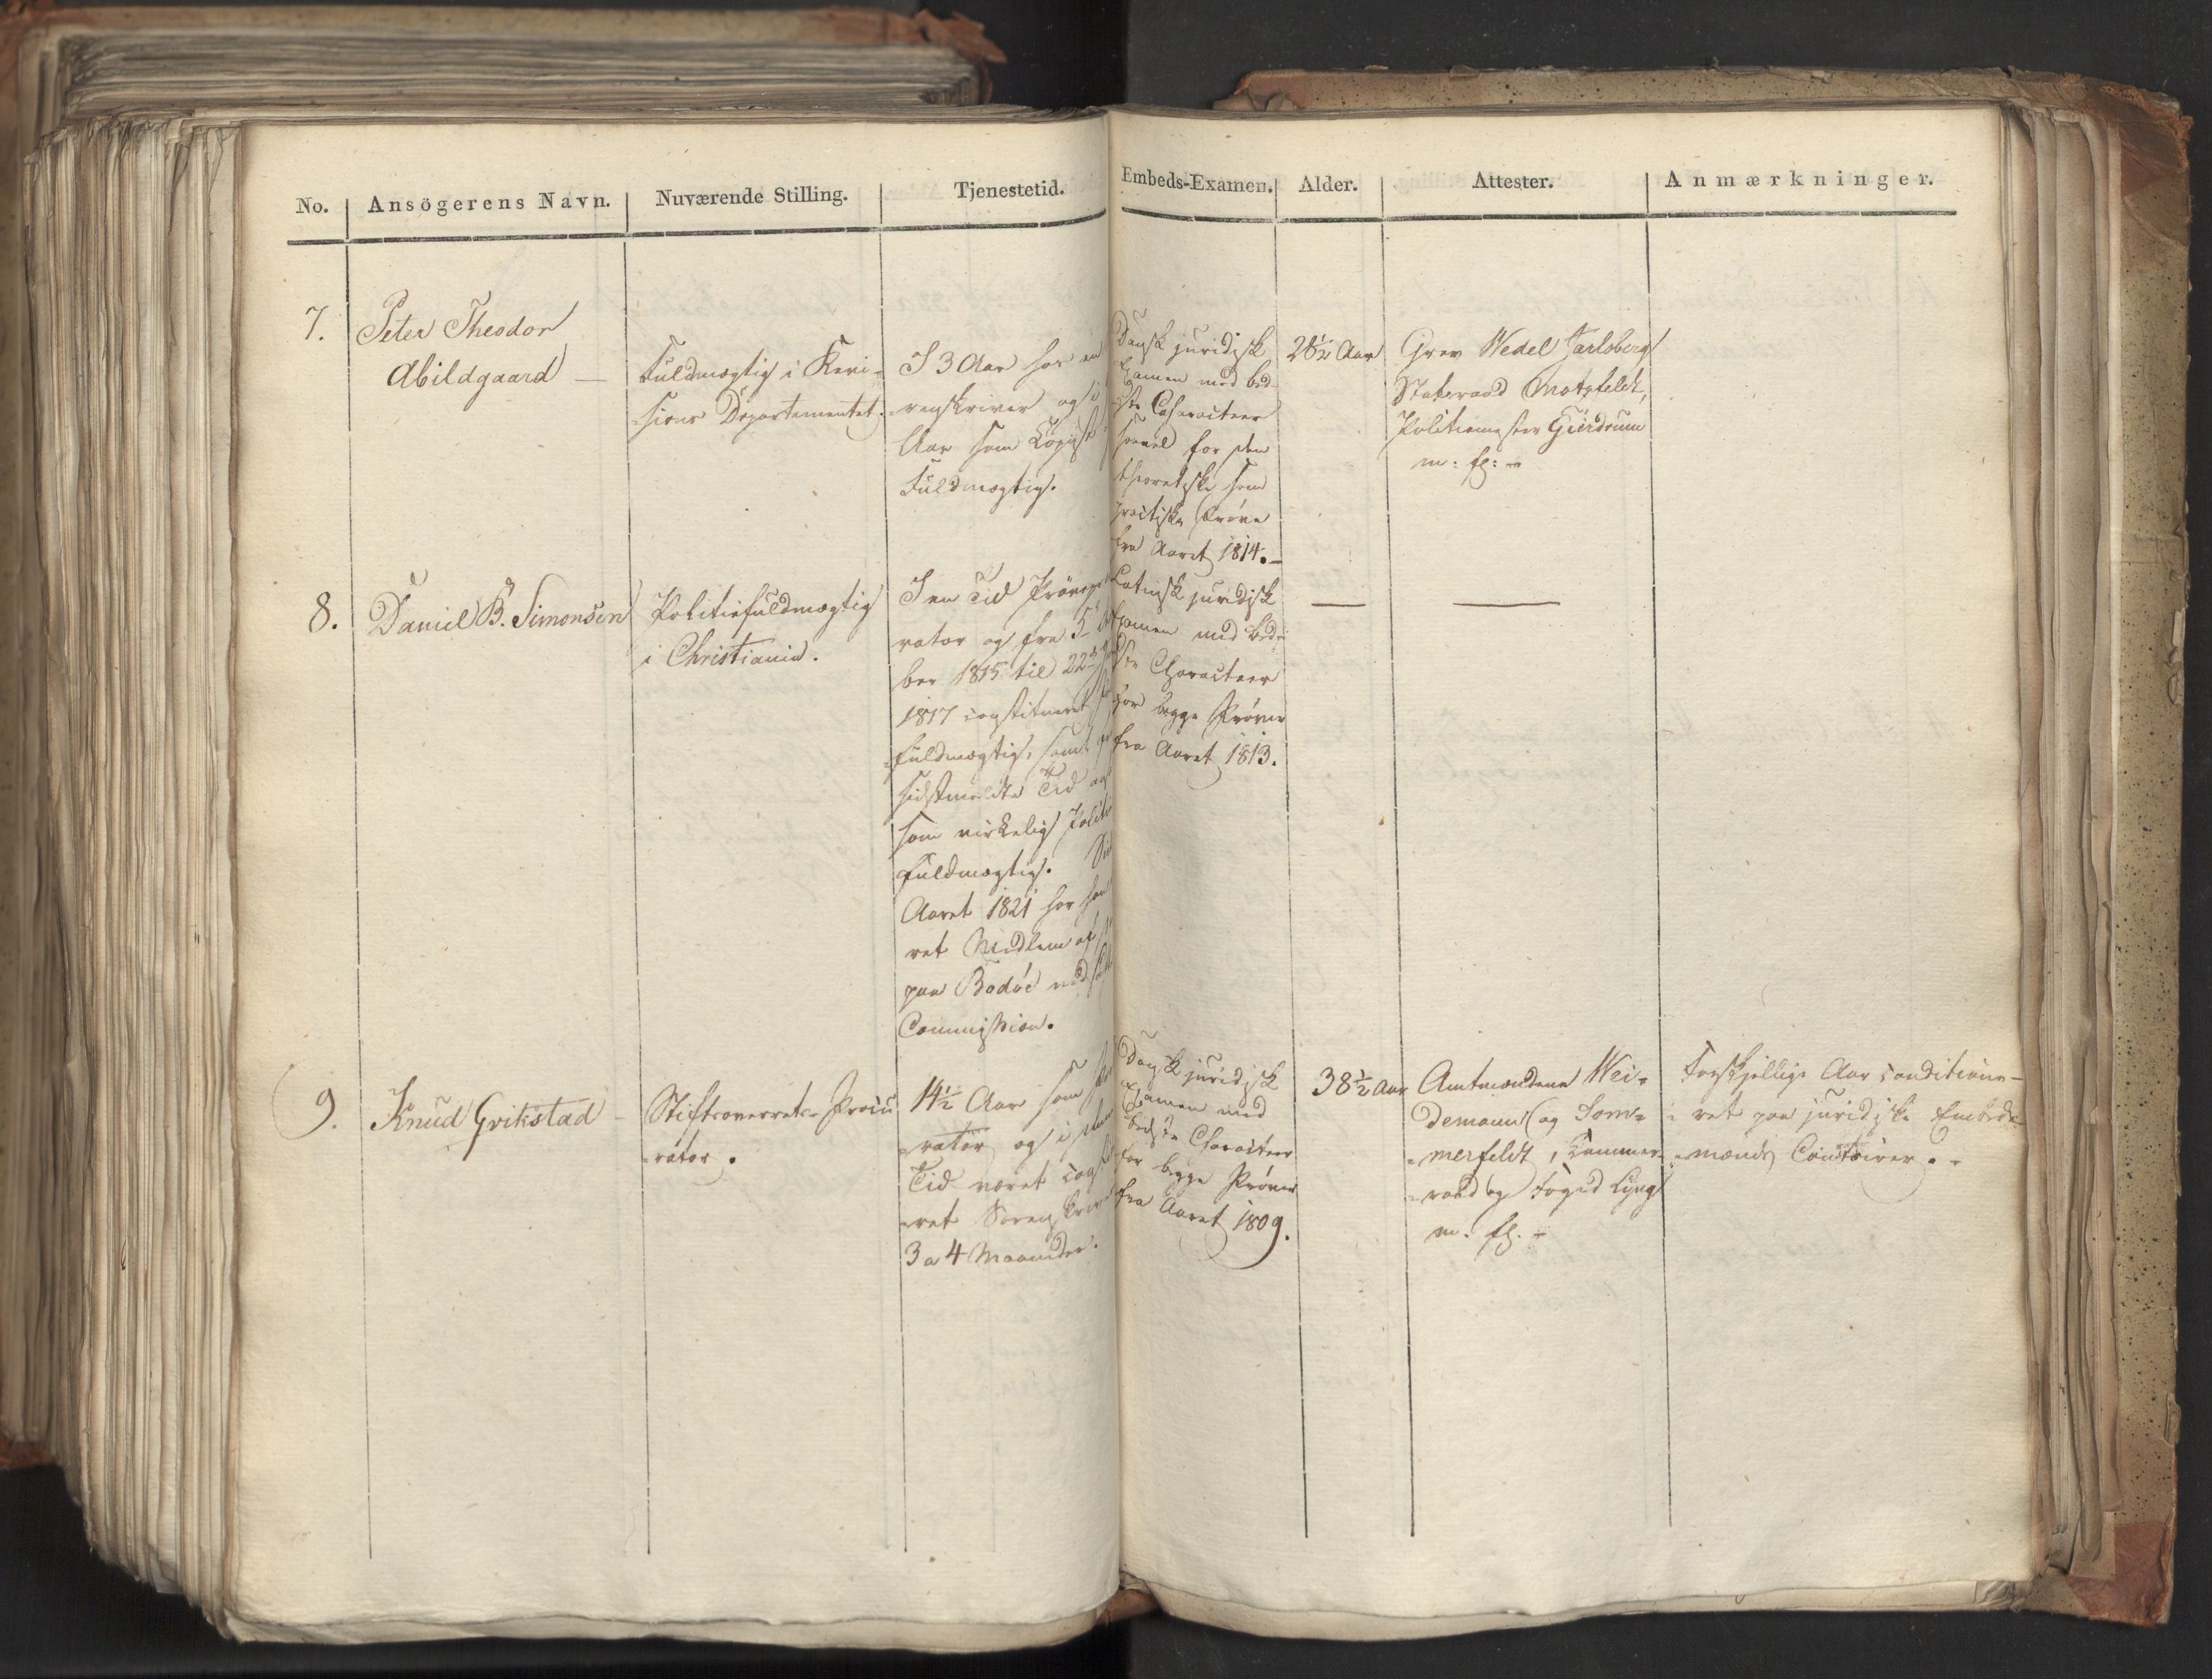 No. Ansögerens Navn. Nuværende Stilling. Tjenestetid. Embeds-Examen. Alder. Attester. Anmærkninger.
7.
Peter Theodor
Abildgaard —
Fuldmægtig i Revi-
-sions Departementet.
I 3 Aar hos en
-renskriver og i
Aar som Copist
Fuldmægtig.
Dansk juridisk
Examen med bed-
-ste Characteer
saavel for den
theoretiske som
practiske Prøve
fra Aaret 1814. —
28½ Aar
Grev Wedel Jarlsberg
Statsraad Motzfeldt,
Politiemester Gürdrum
m: fl: -
8.
Daniel B. Simonsen
Politiefuldmægtig
i Christiania.
I en Tid
rator og fra 5
ber 1815 til 22
1817 constitueret
-fuldmægtig, samt
sidstmeldte Tid
som virkelig Politie
fuldmægtig.
Aaret 1821 har han
ret Medlem af
paa Bodøe
Commission.
Latinsk juridisk
Examen med bed-
-ste Characteer
for begge Prøver
fra Aaret 1813.
—
—
9.
Knud Gvikstad —
Stiftsoverrets-Procu
-rator.
14½ Aar som
-rator og i
Tid været
-ret Sorenskriver
3 a 4 Maaneder.
Dansk juridisk
Examen med
bedste Characteer
for begge Prøver
fra Aaret 1809.
38½ Aar
Amtmændene Wei-
demann og Som-
-merfeldt, Kammer-
-raad og Foged Lyng
m: fl. -
Forskjellige Aar conditione-
-ret paa juridiske Embeds-
-mænds Contoirer. -